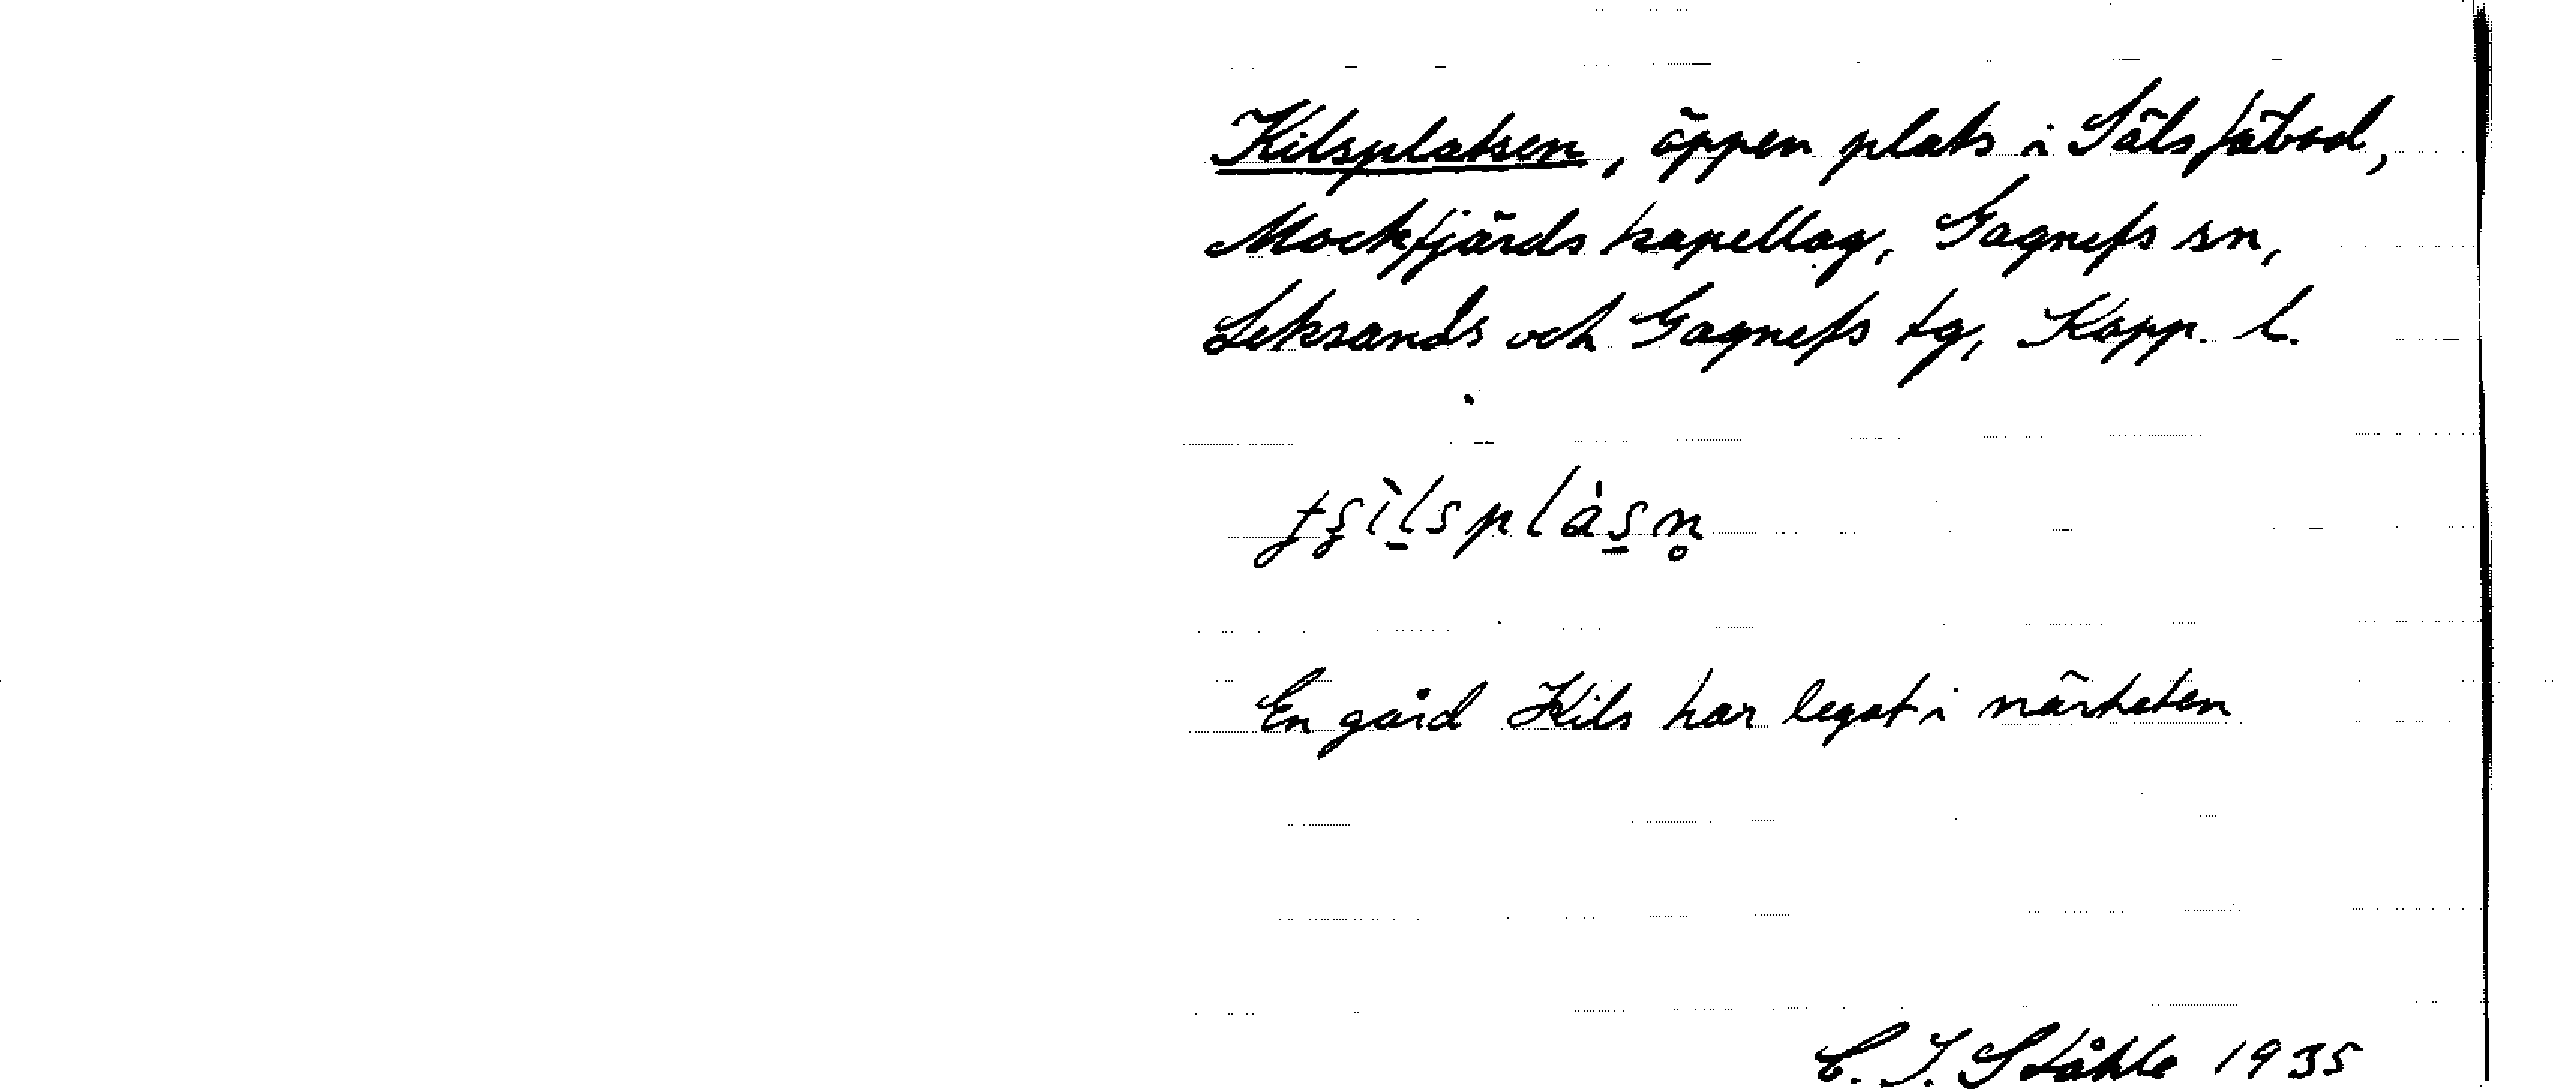 Kilsplatsen, öppen plats i Säls fäbod,
Mockfjärds kapellag, Gagnefs sn,
Leksands och Gagnefs tg, Kopp. l.
En gård Kils har legat i närheten
C. I. Ståhle 1935